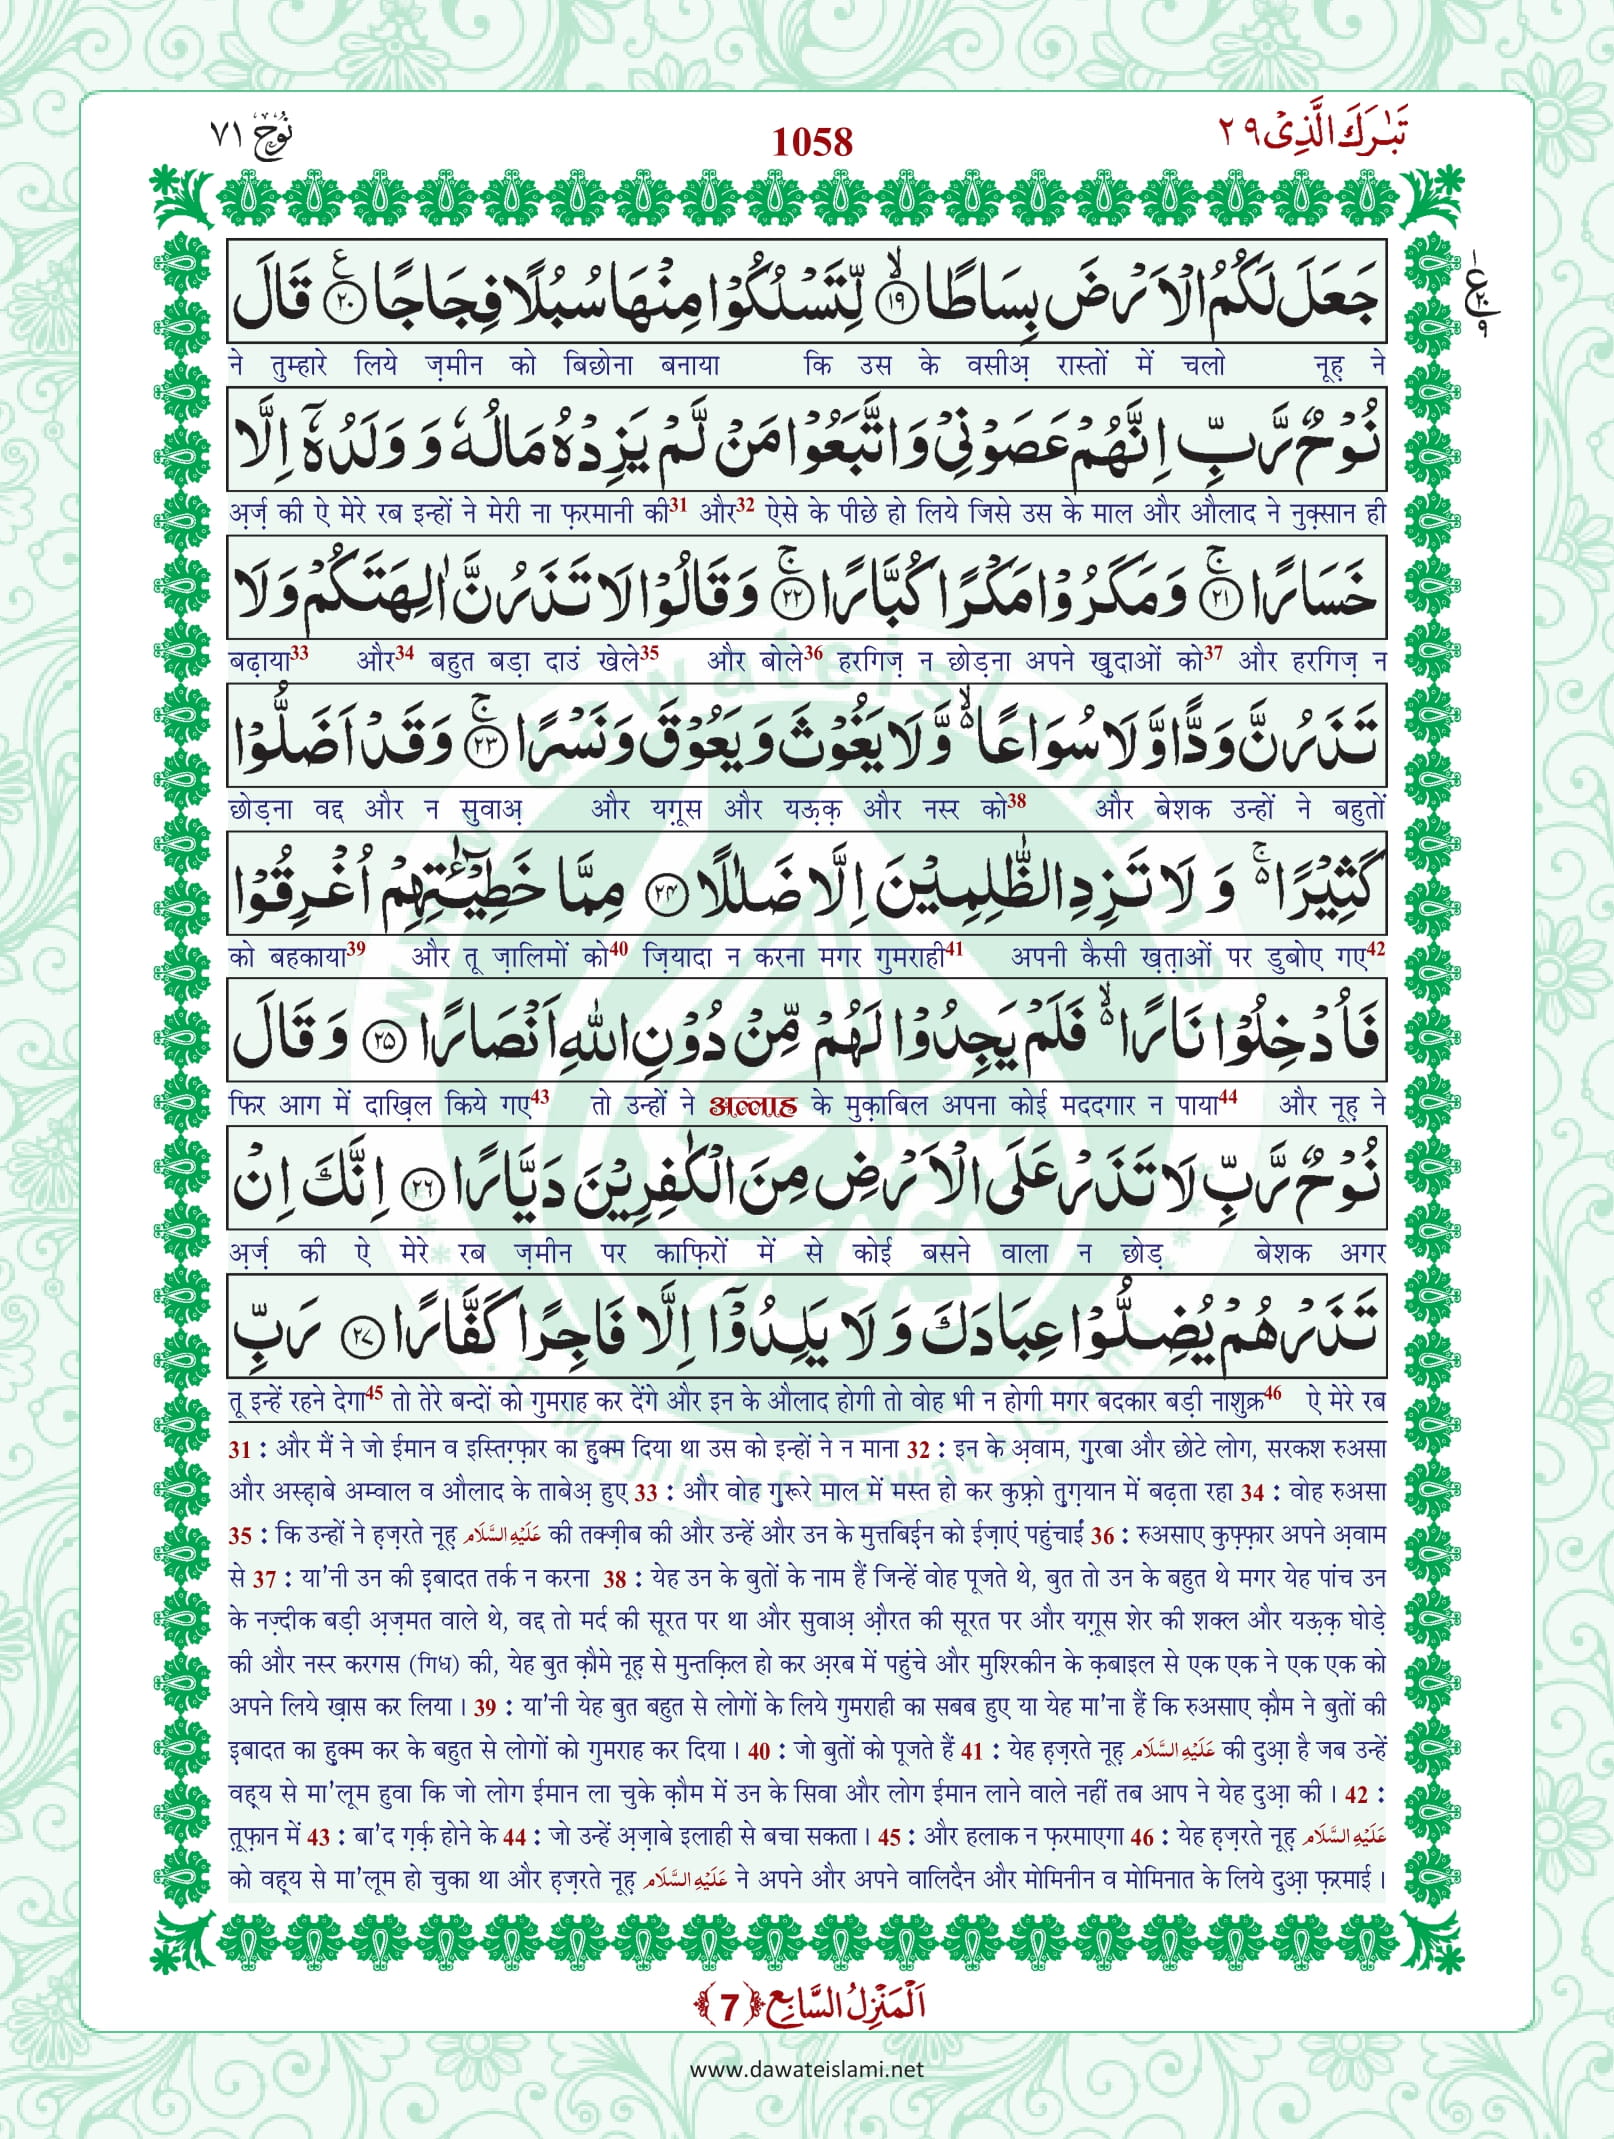 نُوْح ٧١
1058
تَبٰرَكَ الَّذِیْ ٢٩
جَعَلَ لَكُمُ الْاَرْضَ بِسَاطًا ۙ﴿۱۹﴾ لِّتَسْلُكُوْا مِنْهَا سُبُلًا فِجَاجًا ﴿۲۰﴾ۧ قَالَ
ने तुम्हारे लिये ज़मीन को बिछोना बनाया कि उस के वसीअ़ रास्तों में चलो नूह़ ने
نُوْحٌ رَّبِّ اِنَّهُمْ عَصَوْنِیْ وَ اتَّبَعُوْا مَنْ لَّمْ یَزِدْهُ مَالُهٗ وَ وَلَدُهٗۤ اِلَّا
अ़र्ज़ की ऐ मेरे रब इन्हों ने मेरी ना फ़रमानी की31 और32 ऐसे के पीछे हो लिये जिसे उस के माल और औलाद ने नुक़्सान ही
خَسَارًا ۚ﴿۲۱﴾ وَ مَكَرُوْا مَكْرًا كُبَّارًا ۚ﴿۲۲﴾ وَ قَالُوْا لَا تَذَرُنَّ اٰلِهَتَكُمْ وَ لَا
बढ़ाया33 और34 बहुत बड़ा दाउं खेले35 और बोले36 हरगिज़ न छोड़ना अपने ख़ुदाओं को37 और हरगिज़ न
تَذَرُنَّ وَدًّا وَّ لَا سُوَاعًا ۙ۬ وَّ لَا یَغُوْثَ وَ یَعُوْقَ وَ نَسْرًا ۚ﴿۲۳﴾ وَ قَدْ اَضَلُّوْا
छोड़ना वद्द और न सुवाअ़ और यग़ूस और यऊ़क़ और नस्र को38 और बेशक उन्हों ने बहुतों
كَثِیْرًا ۚ۬ وَ لَا تَزِدِ الظّٰلِمِیْنَ اِلَّا ضَلٰلًا ﴿۲۴﴾ مِمَّا خَطِیْٓــٴٰـتِهِمْ اُغْرِقُوْا
को बहकाया39 और तू ज़ालिमों को40 ज़ियादा न करना मगर गुमराही41 अपनी कैसी ख़त़ाओं पर डुबोए गए42
فَاُدْخِلُوْا نَارًا ۙ۬ فَلَمْ یَجِدُوْا لَهُمْ مِّنْ دُوْنِ اللّٰهِ اَنْصَارًا ﴿۲۵﴾ وَ قَالَ
फिर आग में दाख़िल किये गए43 तो उन्हों ने अल्लाह के मुक़ाबिल अपना कोई मददगार न पाया44 और नूह़ ने
نُوْحٌ رَّبِّ لَا تَذَرْ عَلَى الْاَرْضِ مِنَ الْكٰفِرِیْنَ دَیَّارًا ﴿۲۶﴾ اِنَّكَ اِنْ
अ़र्ज़ की ऐ मेरे रब ज़मीन पर काफ़िरों में से कोई बसने वाला न छोड़ बेशक अगर
تَذَرْهُمْ یُضِلُّوْا عِبَادَكَ وَ لَا یَلِدُوْۤا اِلَّا فَاجِرًا كَفَّارًا ﴿۲۷﴾ رَبِّ
तू इन्हें रहने देगा45 तो तेरे बन्दों को गुमराह कर देंगे और इन के औलाद होगी तो वोह भी न होगी मगर बदकार बड़ी नाशुक्र46 ऐ मेरे रब
31 : और मैं ने जो ईमान व इस्तिग़्फ़ार का हुक्म दिया था उस को इन्हों ने न माना 32 : इन के अ़वाम, ग़ुरबा और छोटे लोग, सरकश रुअसा
और अस्ह़ाबे अम्वाल व औलाद के ताबेअ़ हुए 33 : और वोह ग़ुरूरे माल में मस्त हो कर कुफ़्रो तुग़्यान में बढ़ता रहा 34 : वोह रुअसा
35 : कि उन्हों ने ह़ज़रते नूह़ عَلَيْهِ السَّلَام की तक्ज़ीब की और उन्हें और उन के मुत्तबिईन को ईज़ाएं पहुंचाईं 36 : रुअसाए कुफ़्फ़ार अपने अ़वाम
से 37 : या'नी उन की इबादत तर्क न करना 38 : येह उन के बुतों के नाम हैं जिन्हें वोह पूजते थे, बुत तो उन के बहुत थे मगर येह पांच उन
के नज़्दीक बड़ी अ़ज़मत वाले थे, वद्द तो मर्द की सूरत पर था और सुवाअ़ औ़रत की सूरत पर और यग़ूस शेर की शक्ल और यऊ़क़ घोड़े
की और नस्र करगस (गिध) की, येह बुत क़ौमे नूह़ से मुन्तक़िल हो कर अ़रब में पहुंचे और मुश्रिकीन के क़बाइल से एक एक ने एक एक को
अपने लिये ख़ास कर लिया। 39 : या'नी येह बुत बहुत से लोगों के लिये गुमराही का सबब हुए या येह मा'ना हैं कि रुअसाए क़ौम ने बुतों की
इबादत का हुक्म कर के बहुत से लोगों को गुमराह कर दिया। 40 : जो बुतों को पूजते हैं 41 : येह ह़ज़रते नूह़ عَلَيْهِ السَّلَام की दुआ़ है जब उन्हें
वह़्य से मा'लूम हुवा कि जो लोग ईमान ला चुके क़ौम में उन के सिवा और लोग ईमान लाने वाले नहीं तब आप ने येह दुआ़ की। 42 :
त़ूफ़ान में 43 : बा'द ग़र्क़ होने के 44 : जो उन्हें अ़ज़ाबे इलाही से बचा सकता। 45 : और हलाक न फ़रमाएगा 46 : येह ह़ज़रते नूह़ عَلَيْهِ السَّلَام
को वह़्य से मा'लूम हो चुका था और ह़ज़रते नूह़ عَلَيْهِ السَّلَام ने अपने और अपने वालिदैन और मोमिनीन व मोमिनात के लिये दुआ़ फ़रमाई।
اَلْمَنْزِلُ السَّابِع ﴿7﴾
www.dawateislami.net